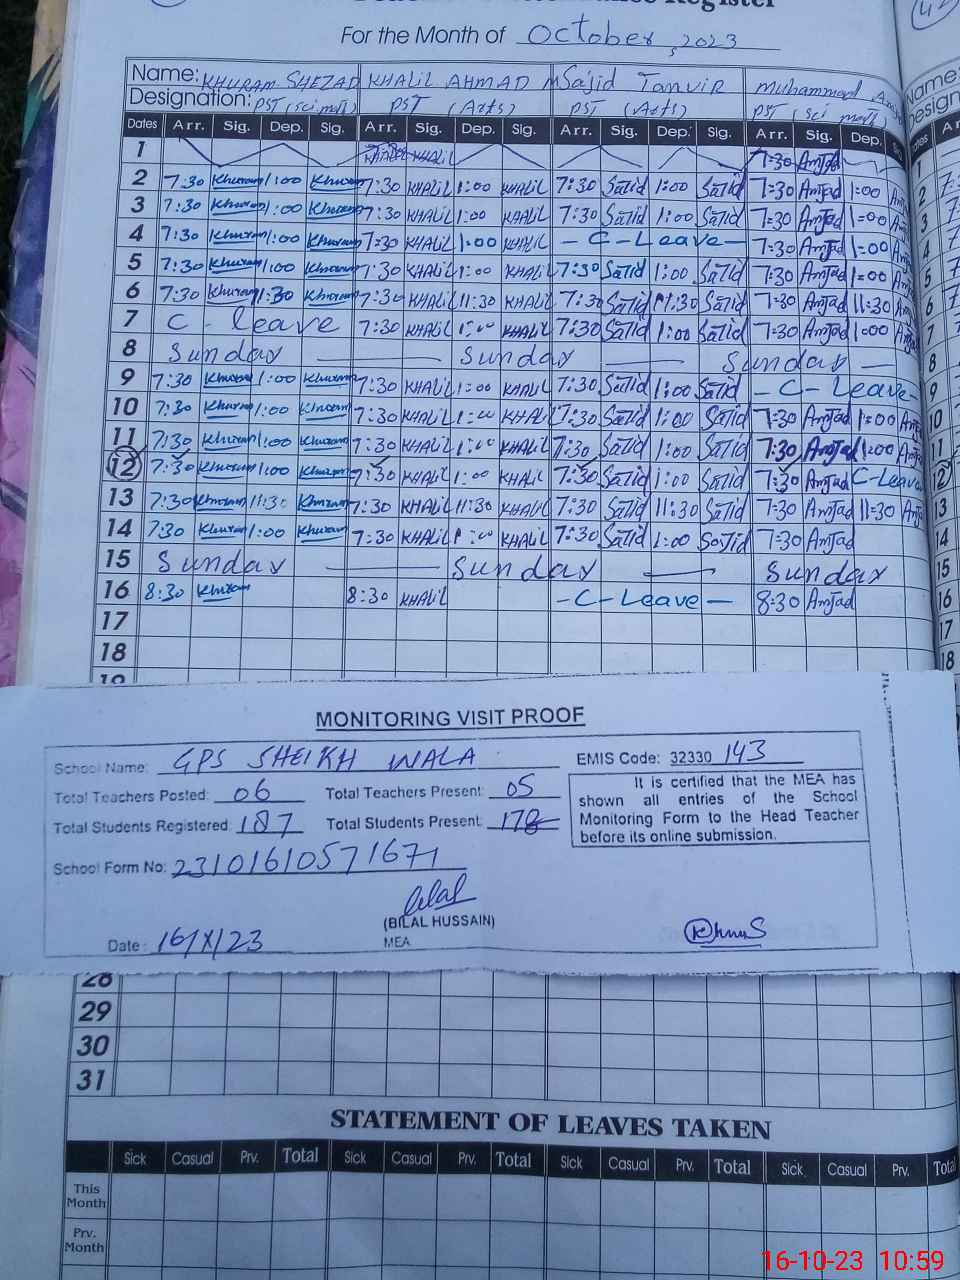 For the Month of October, 2023
Name: KHURAM SHEZAD KHALIL AHMAD M Sajid Tanvir Muhammad
Designation: PST (Sci math) PST (Arts) PST (Arts) PST (Sci math)
Dates Arr. Sig. Dep. Sig. Arr. Sig. Dep. Sig. Arr. Sig. Dep. Sig. Arr. Sig. Dep.
1 KHALIL KHALIL 7:30 Amjad
2 7:30 Khuram 1:00 Khuram 7:30 KHALIL 1:00 KHALIL 7:30 Sajid 1:00 Sajid 7:30 Amjad 1=00
3 7:30 Khuram 1:00 Khuram 7:30 KHALIL 1:00 KHALIL 7:30 Sajid 1:00 Sajid 7:30 Amjad 1=00
4 7:30 Khuram 1:00 Khuram 7=30 KHALIL 1:00 KHALIL - C - Leave - 7:30 Amjad 1=00
5 7:30 Khuram 1:00 Khuram 7:30 KHALIL 1:00 KHALIL 7:30 Sajid 1:00 Sajid 7:30 Amjad 1=00
6 7:30 Khuram 11:30 Khuram 7:30 KHALIL 11:30 KHALIL 7:30 Sajid 11:30 Sajid 7:30 Amjad 11=30
7 C - leave 7:30 KHALIL 1:00 KHALIL 7:30 Sajid 1:00 Sajid 7:30 Amjad 1=00
8 Sunday Sunday Sunday
9 7:30 Khuram 1:00 Khuram 7:30 KHALIL 1:00 KHALIL 7:30 Sajid 1:00 Sajid - C - Leave -
10 7:30 Khuram 1:00 Khuram 7:30 KHALIL 1:00 KHALIL 7:30 Sajid 1:00 Sajid 7:30 Amjad 1=00
11 7:30 Khuram 1:00 Khuram 7:30 KHALIL 1:00 KHALIL 7:30 Sajid 1:00 Sajid 7:30 Amjad 1:00
12 7:30 Khuram 1:00 Khuram 7:30 KHALIL 1:00 KHALIL 7:30 Sajid 1:00 Sajid 7:30 Amjad C-Leave
13 7:30 Khuram 11:30 Khuram 7:30 KHALIL 11:30 KHALIL 7:30 Sajid 11:30 Sajid 7:30 Amjad 11=30
14 7:30 Khuram 1:00 Khuram 7:30 KHALIL 1:00 KHALIL 7:30 Sajid 1:00 Sajid 7:30 Amjad
15 Sunday Sunday Sunday
16 8:30 Khuram 8:30 KHALIL - C - Leave - 8:30 Amjad
17
18
MONITORING VISIT PROOF
School Name: GPS SHEIKH WALA EMIS Code: 32330 143
Total Teachers Posted: 06 Total Teachers Present: 05
Total Students Registered: 187 Total Students Present: 178
It is certified that the MEA has
shown all entries of the School
Monitoring Form to the Head Teacher
before its online submission.
School Form No: 23101610571671
Bilal
(BILAL HUSSAIN)
Date: 16/X/23 MEA
28
29
30
31
STATEMENT OF LEAVES TAKEN
Sick Casual Prv. Total Sick Casual Prv. Total Sick Casual Prv. Total Sick Casual Prv. Total
This Month
Prv. Month
16-10-23 10:59